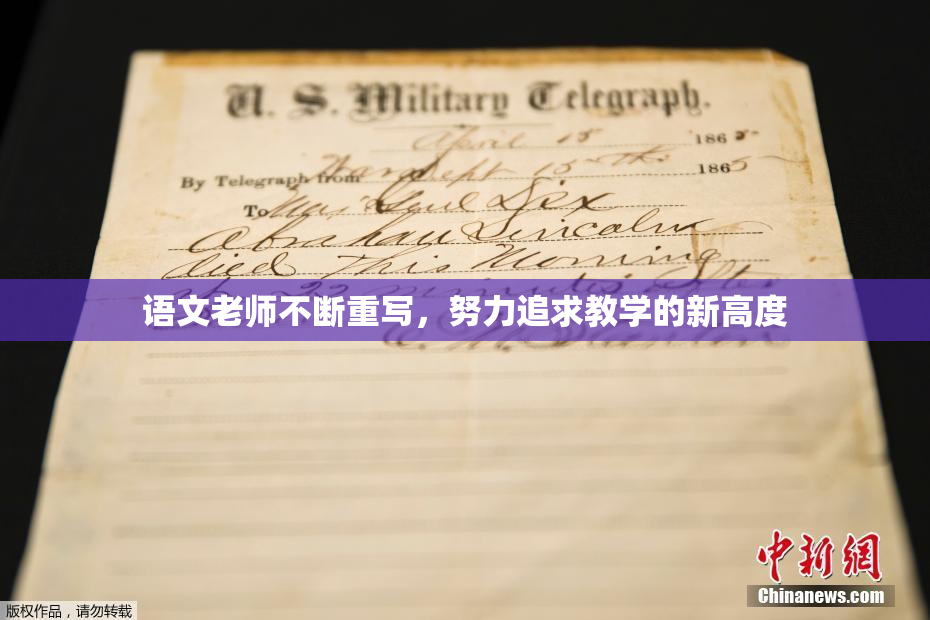 U. S. Military Telegraph.
April 15 1865
By Telegraph from War Dept 15th 1865
To Maj Genl Dix
Abraham Lincoln
died This Morning
at 22 minutes after
语文老师不断重写，努力追求教学的新高度
E. M. Stanton
中新網
Chinanews.com
版权作品，请勿转载